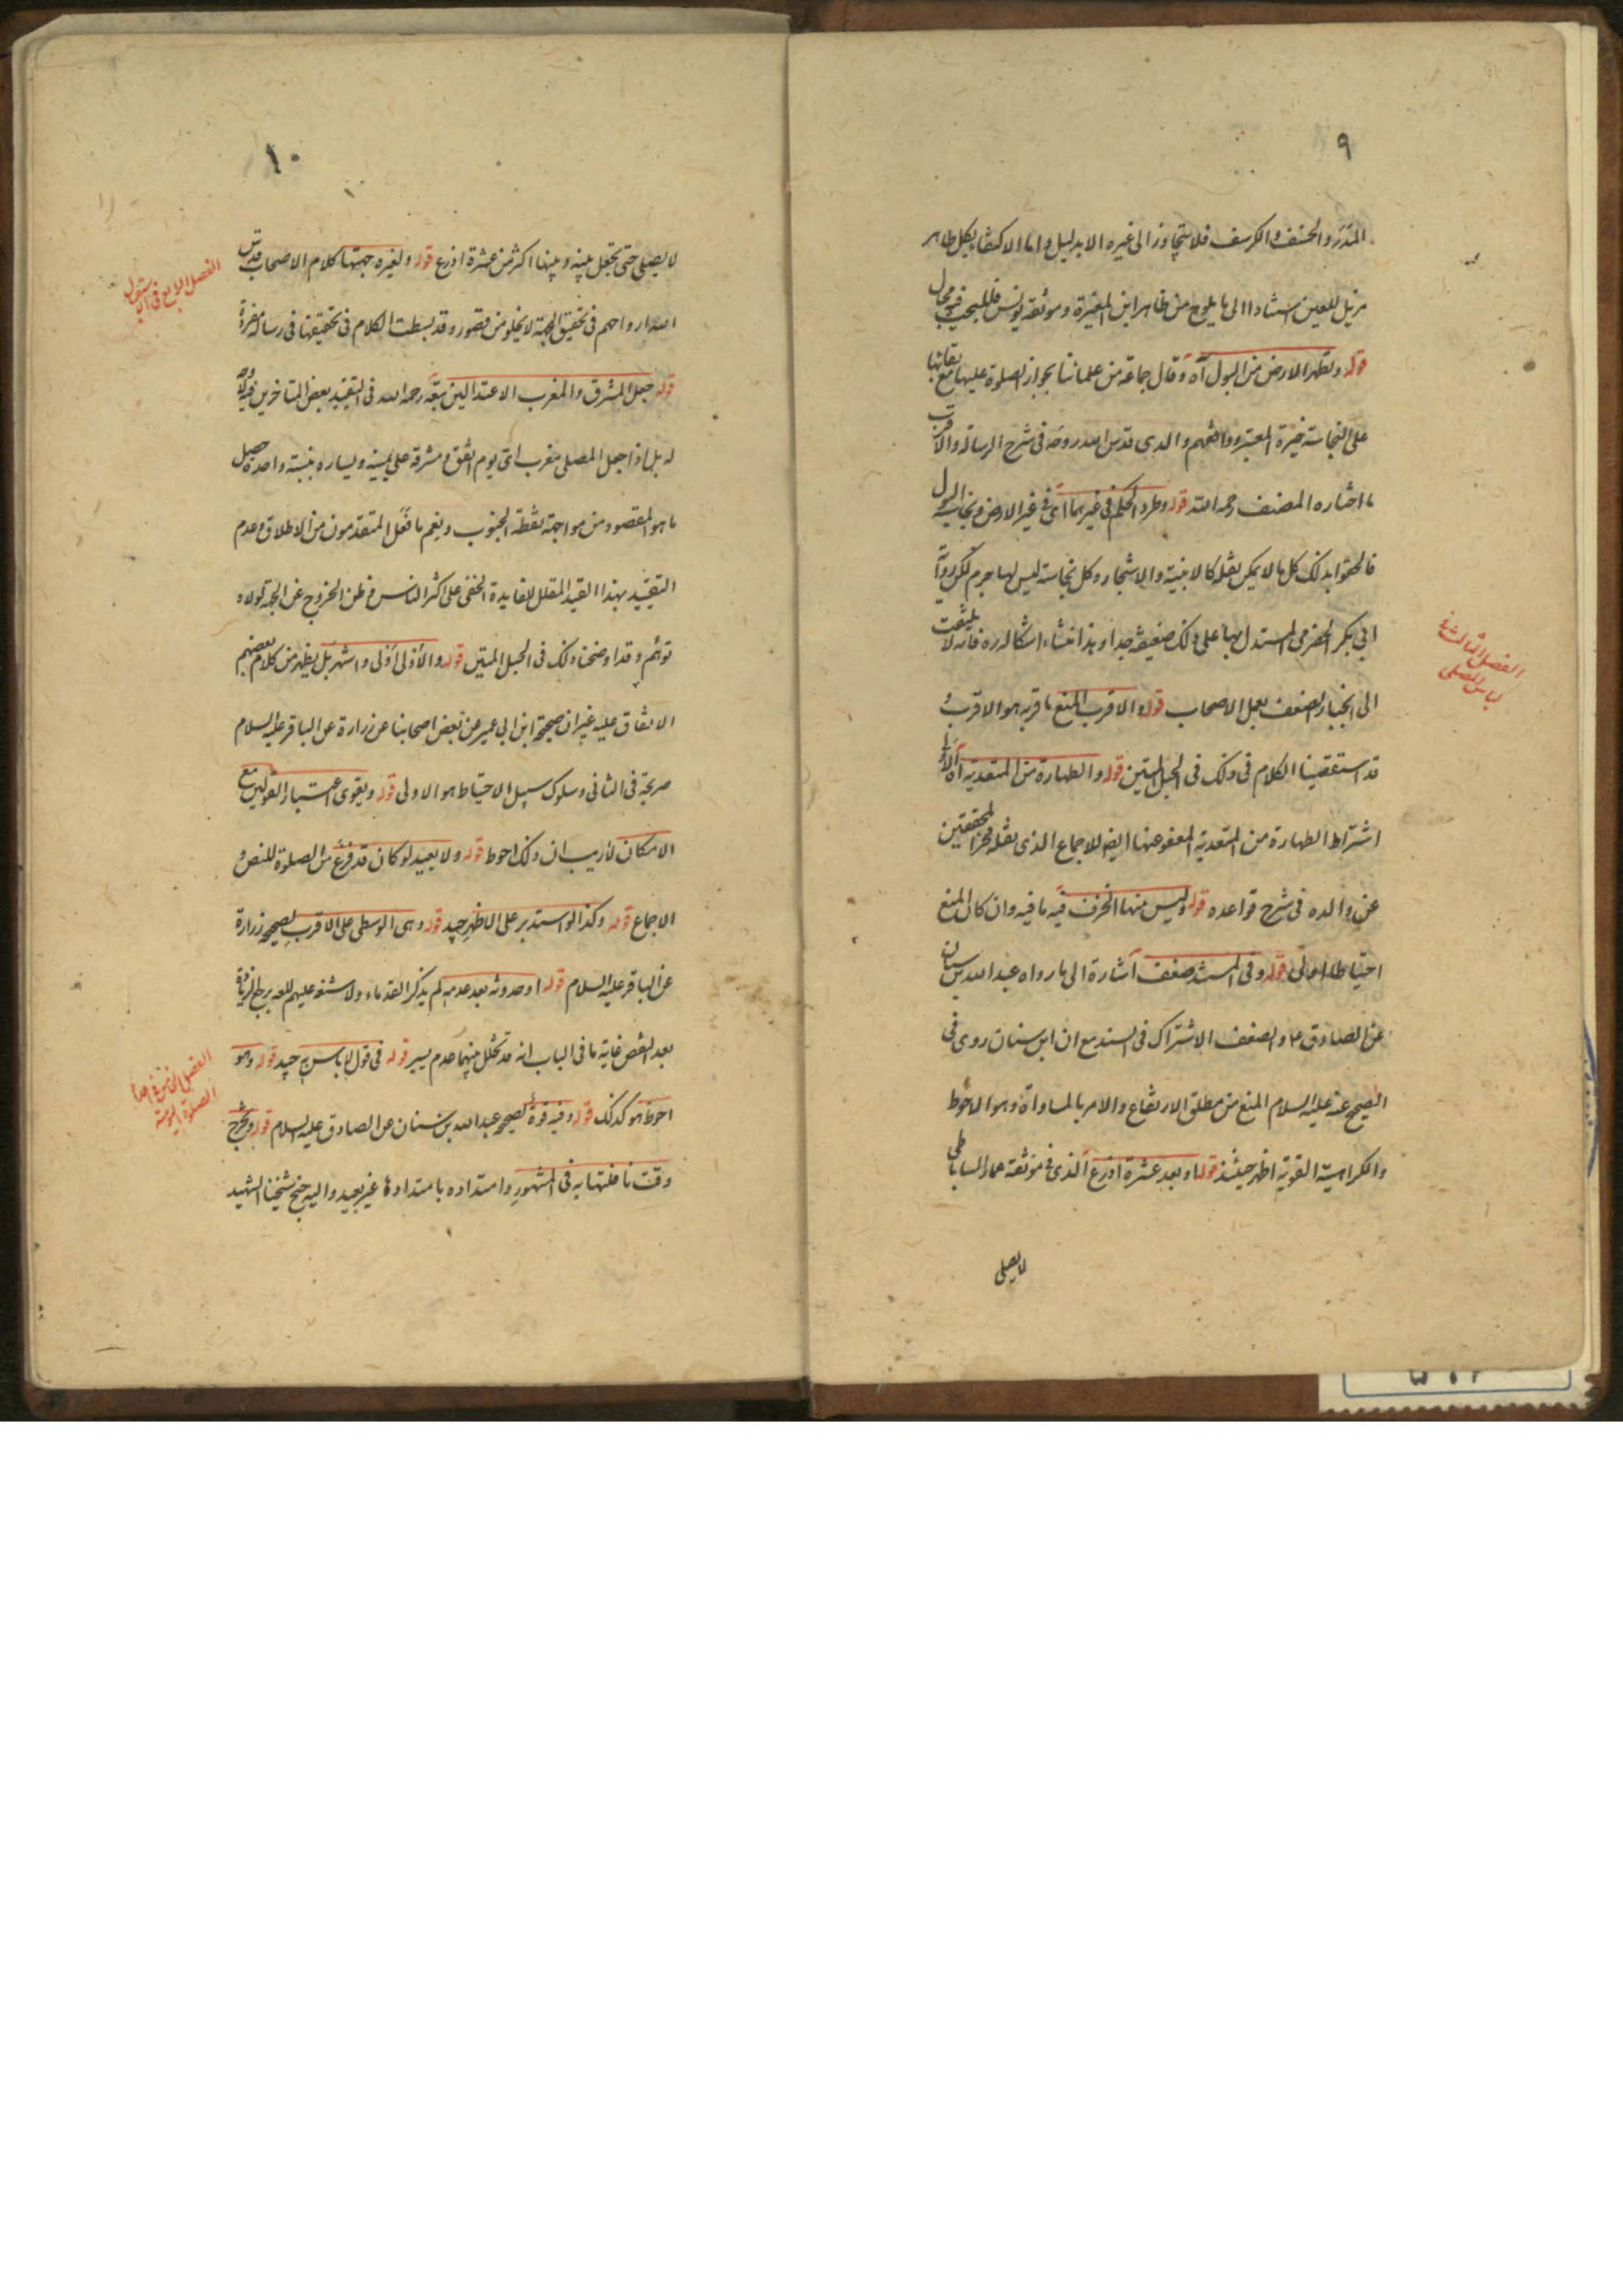 ٩
المدر والخشف والكرسف فلا يتجاوز الى غيره الا بدليل واما الاكتفاء بكل طاهر
مزيل للعين استنادا الى ما يلوح من ظاهر ابن المغيرة وموثقة يونس فللبحث فيه مجال
قوله وتطهر الارض من البول آه وقال جماعة من علمائنا بجواز الصلوة عليها مع بقائها
على النجاسة خيرة المعتبر ووافقهم والدى قدس الله روحه فى شرح الرسالة والاقرب
ما اختاره المصنف رحمه الله قوله وطرد الحكم فى غيرهما اى فى غير الارض ونجاسة البول
فالحقوا بذلك كل ما لا يمكن نقله كالابنية والاشجار وكل نجاسة ليس لها جرم لكن رواية
ابى بكر الحضرمى المستدل بها على ذلك ضعيفة جدا وهذا منشاء اشكاله ره فانه لا يلتفت
الى انجبار الضعف بعمل الاصحاب قوله والاقرب المنع ما قربه هو الاقرب
الفصل الثالث فى
لباس المصلى
قد استقصينا الكلام فى ذلك فى الحبل المتين قوله والطهارة من المتعدية آه
اشتراط الطهارة من المتعدية المعفو عنها ايضا للاجماع الذى نقله فخر المحققين
عن والده فى شرح قواعده قوله وليس منها الخزف فيه ما فيه وان كان المنع
احتياطا اولى قوله وفى المستند ضعف اشارة الى ما رواه عبد الله بن سنان
عن الصادق ع والضعف الاشتراك فى السند مع ان ابن سنان روى فى
الصحيح عنه عليه السلام المنع من مطلق الارتفاع والامر بالمساواة وهو الاحوط
والكراهية القوية اظهر حينئذ قوله او بعد عشرة اذرع الذى فى موثقة عمار الساباطى
لا يصلى
١٠
لا يصلى حتى يجعل بينه وبينها اكثر من عشرة اذرع قوله ولغيره جهتها كلام الاصحاب قدس
الفصل الرابع فى الاستقبال
الله ارواحهم فى تحقيق الجهة لا يخلو من قصور وقد بسطت الكلام فى تحقيقها فى رسالة مفردة
قوله جعل المشرق والمغرب الاعتدالين تبعه رحمه الله فى التقييد بعض المتاخرين
له بل اذا جعل المصلى مغرب اى يوم اتفق ومشرقه على يمينه ويساره بنسبة واحدة حصل
ما هو المقصود من مواجهة نقطة الجنوب ونعم ما فعل المتقدمون من الاطلاق وعدم
التقييد بهذا القيد المقلل للفايدة الخفى على اكثر الناس وظن الخروج عن الجهة لولاه
توهم وقد اوضحنا ذلك فى الحبل المتين قوله والاولى اولى واشهر بل يظهر من كلام بعضهم
الاتفاق عليه غير ان صحيحة ابن ابى عمير عن بعض اصحابنا عن زرارة عن الباقر عليه السلام
صريحة فى الثانى وسلوك سبيل الاحتياط هو الاولى قوله ويقوى اعتبار القولين مع
الامكان لا ريب ان ذلك احوط قوله ولا يعيد لو كان قد فرغ من الصلوة للنص و
الاجماع قوله وكذا لو استدبر على الاظهر جيد قوله وهى الوسطى على الاقرب لصحيحة زرارة
عن الباقر عليه السلام قوله او حدوثه بعد عدمه لم يذكر القدماء
بعد النقص غاية ما فى الباب انه قد تخلل بينهما عدم يسير قوله فى قول لا باس به جيد قوله وهو
الفصل الخامس فى اعداد
الصلوة اليومية
احوط هو كذلك قوله وفيه قوة لصحيحة عبد الله بن سنان عن الصادق عليه السلام قوله ويخرج
وقت نافلتها به فى المشهور وامتداده بامتدادها غير بعيد واليه جنح شيخنا الشهيد